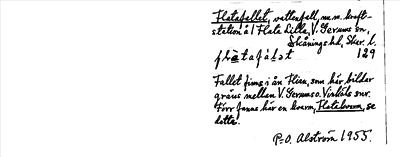 Flatafallet, vattenfall, m.m. kraft-
station å l Flata Lilla, V. Gerums sn,
Skånings hd, Skar. l.
129
Fallet finns i ån Flian, som här bildar
gräns mellan V. Gerums o. Vinköls snr.
Förr fanns här en kvarn, Flatekvarn, se
detta.
P-O. Alström 1955.